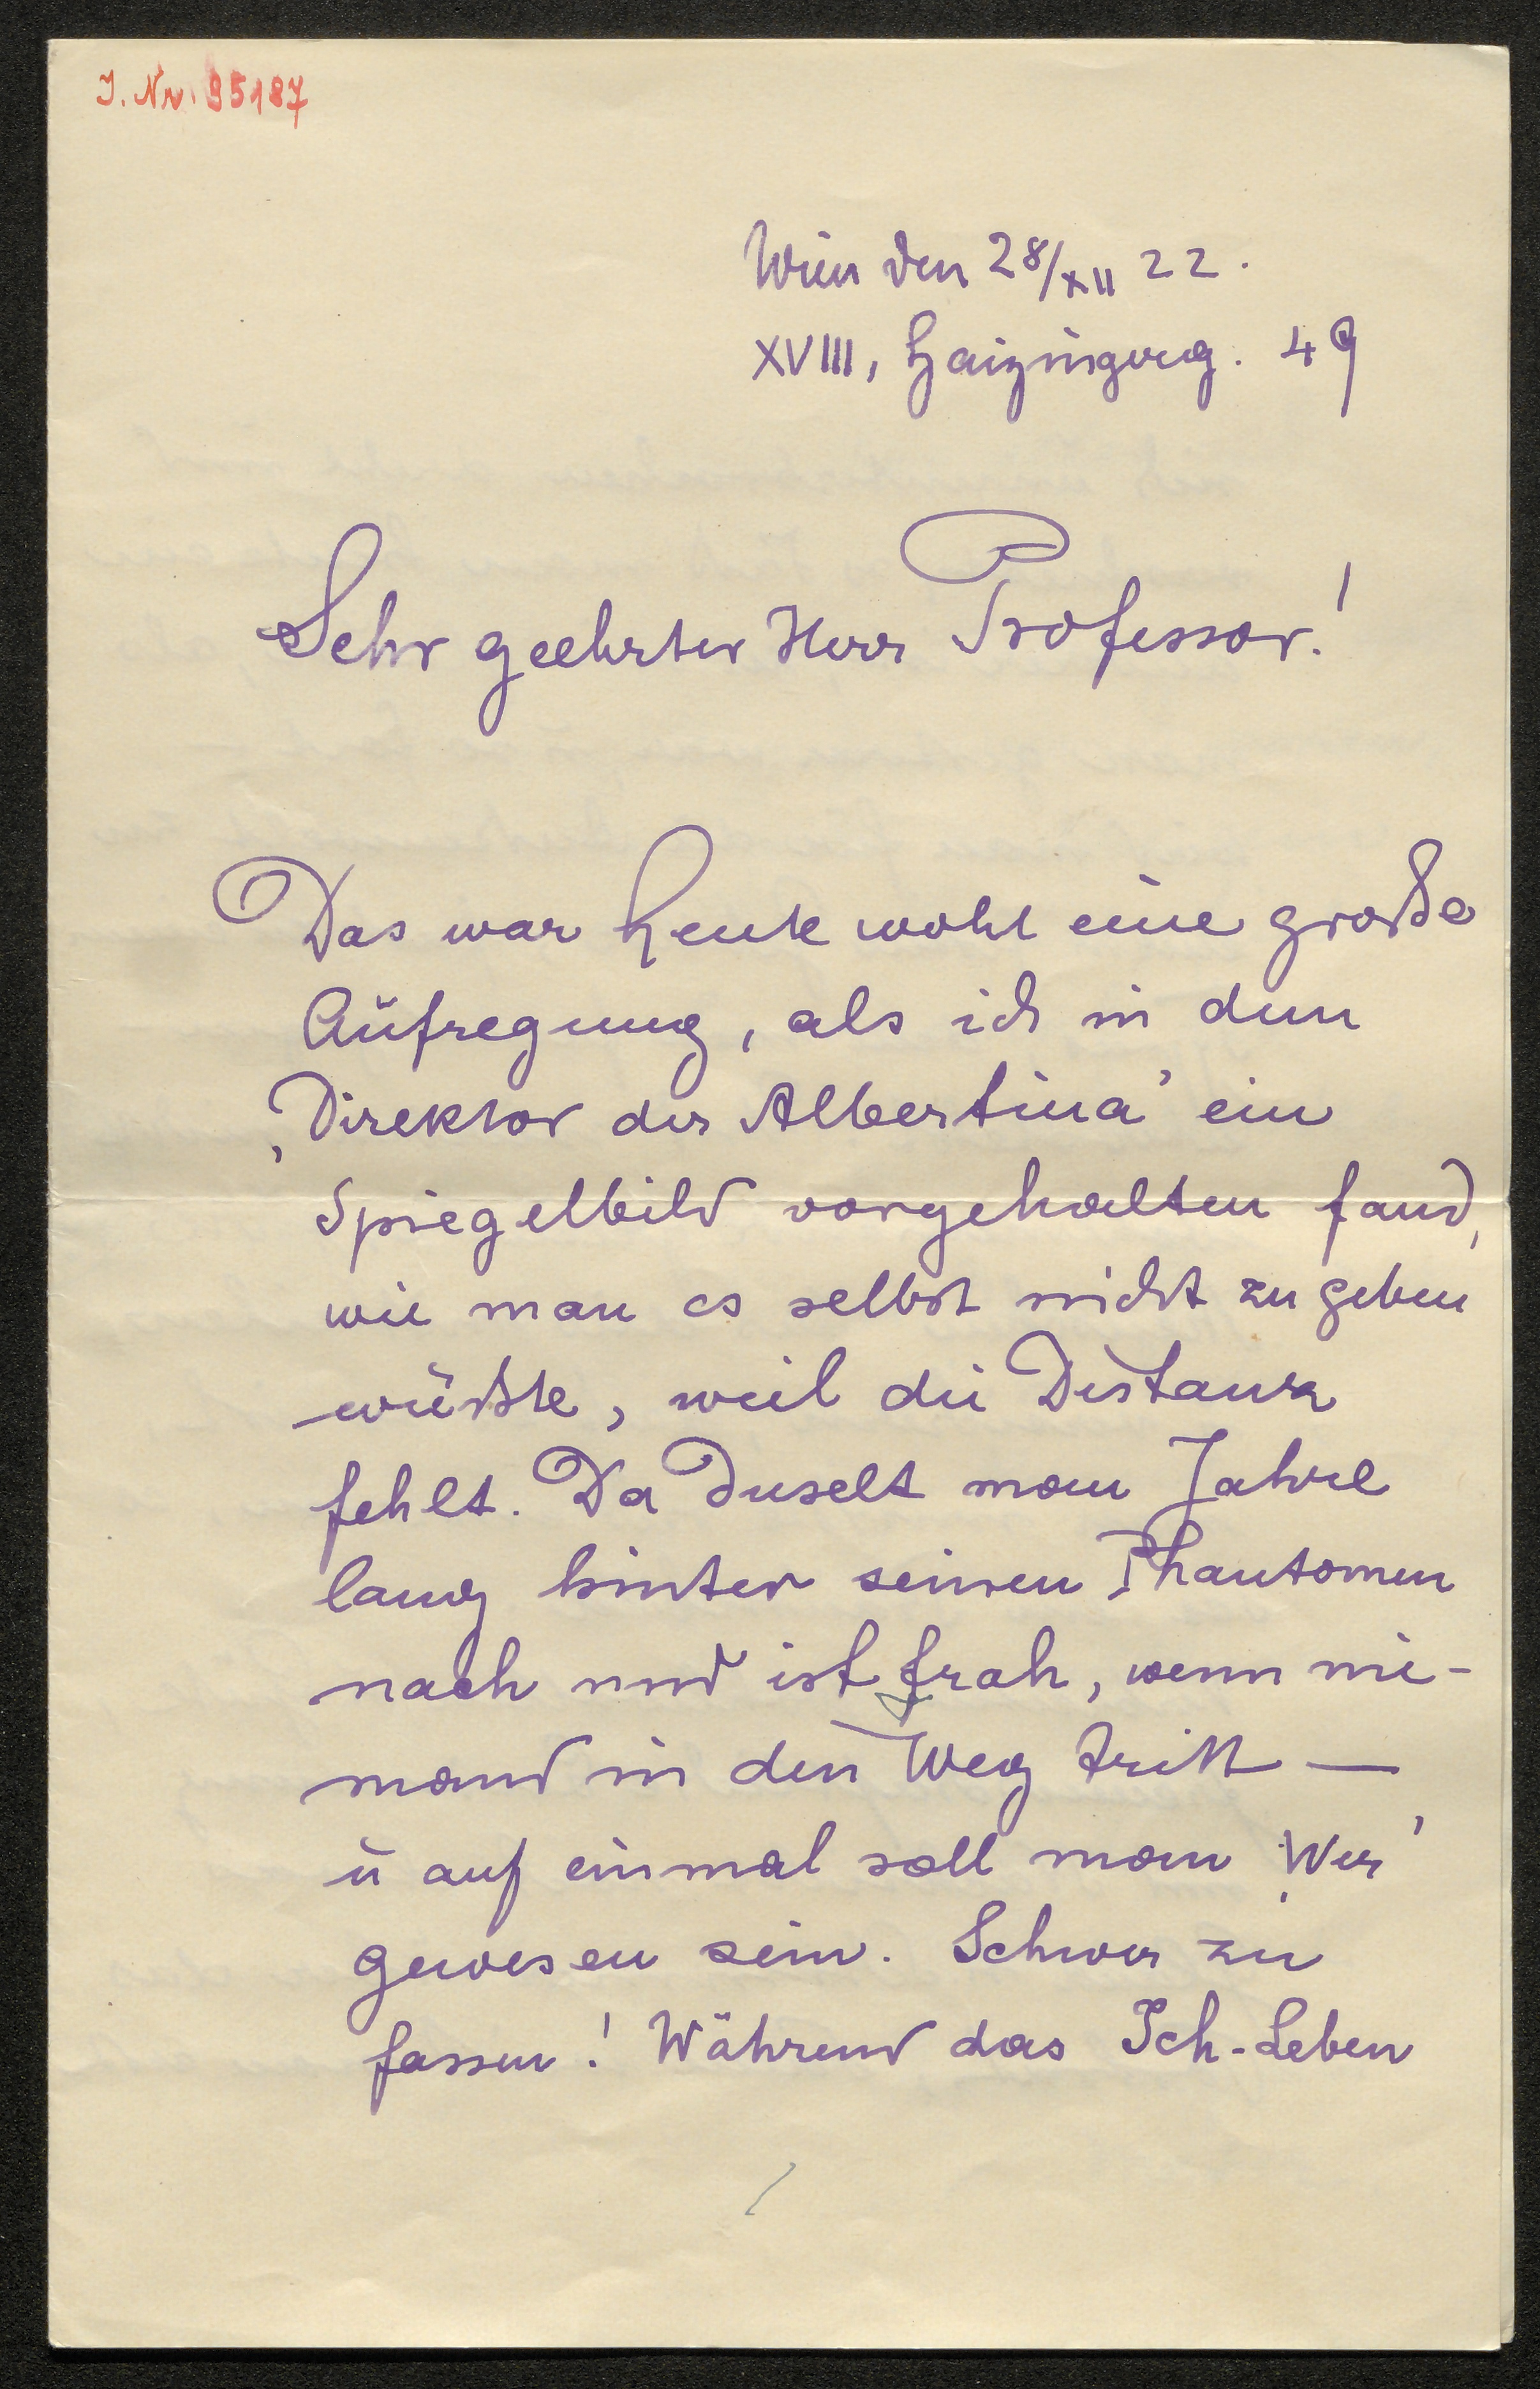 I. Nr. 95187
Wien den 28/XII 22.
XVIII, Haizingerg. 49
Sehr geehrter Herr Professor!
Das war heute wohl eine große
Aufregung, als ich in dem
‚Direktor der Albertina’ ein
Spiegelbild vorgehalten fand,
wie man es selbst nicht zu geben
wüßte, weil die Distanz
fehlt. Da duselt man Jahre
lang hinter seinen Phantomen
nach und ist froh, wenn nie-
mand in den Weg tritt —
u auf einmal soll man ‚Wer’
gewesen sein. Schwer zu
fassen! Während das Ich-Leben